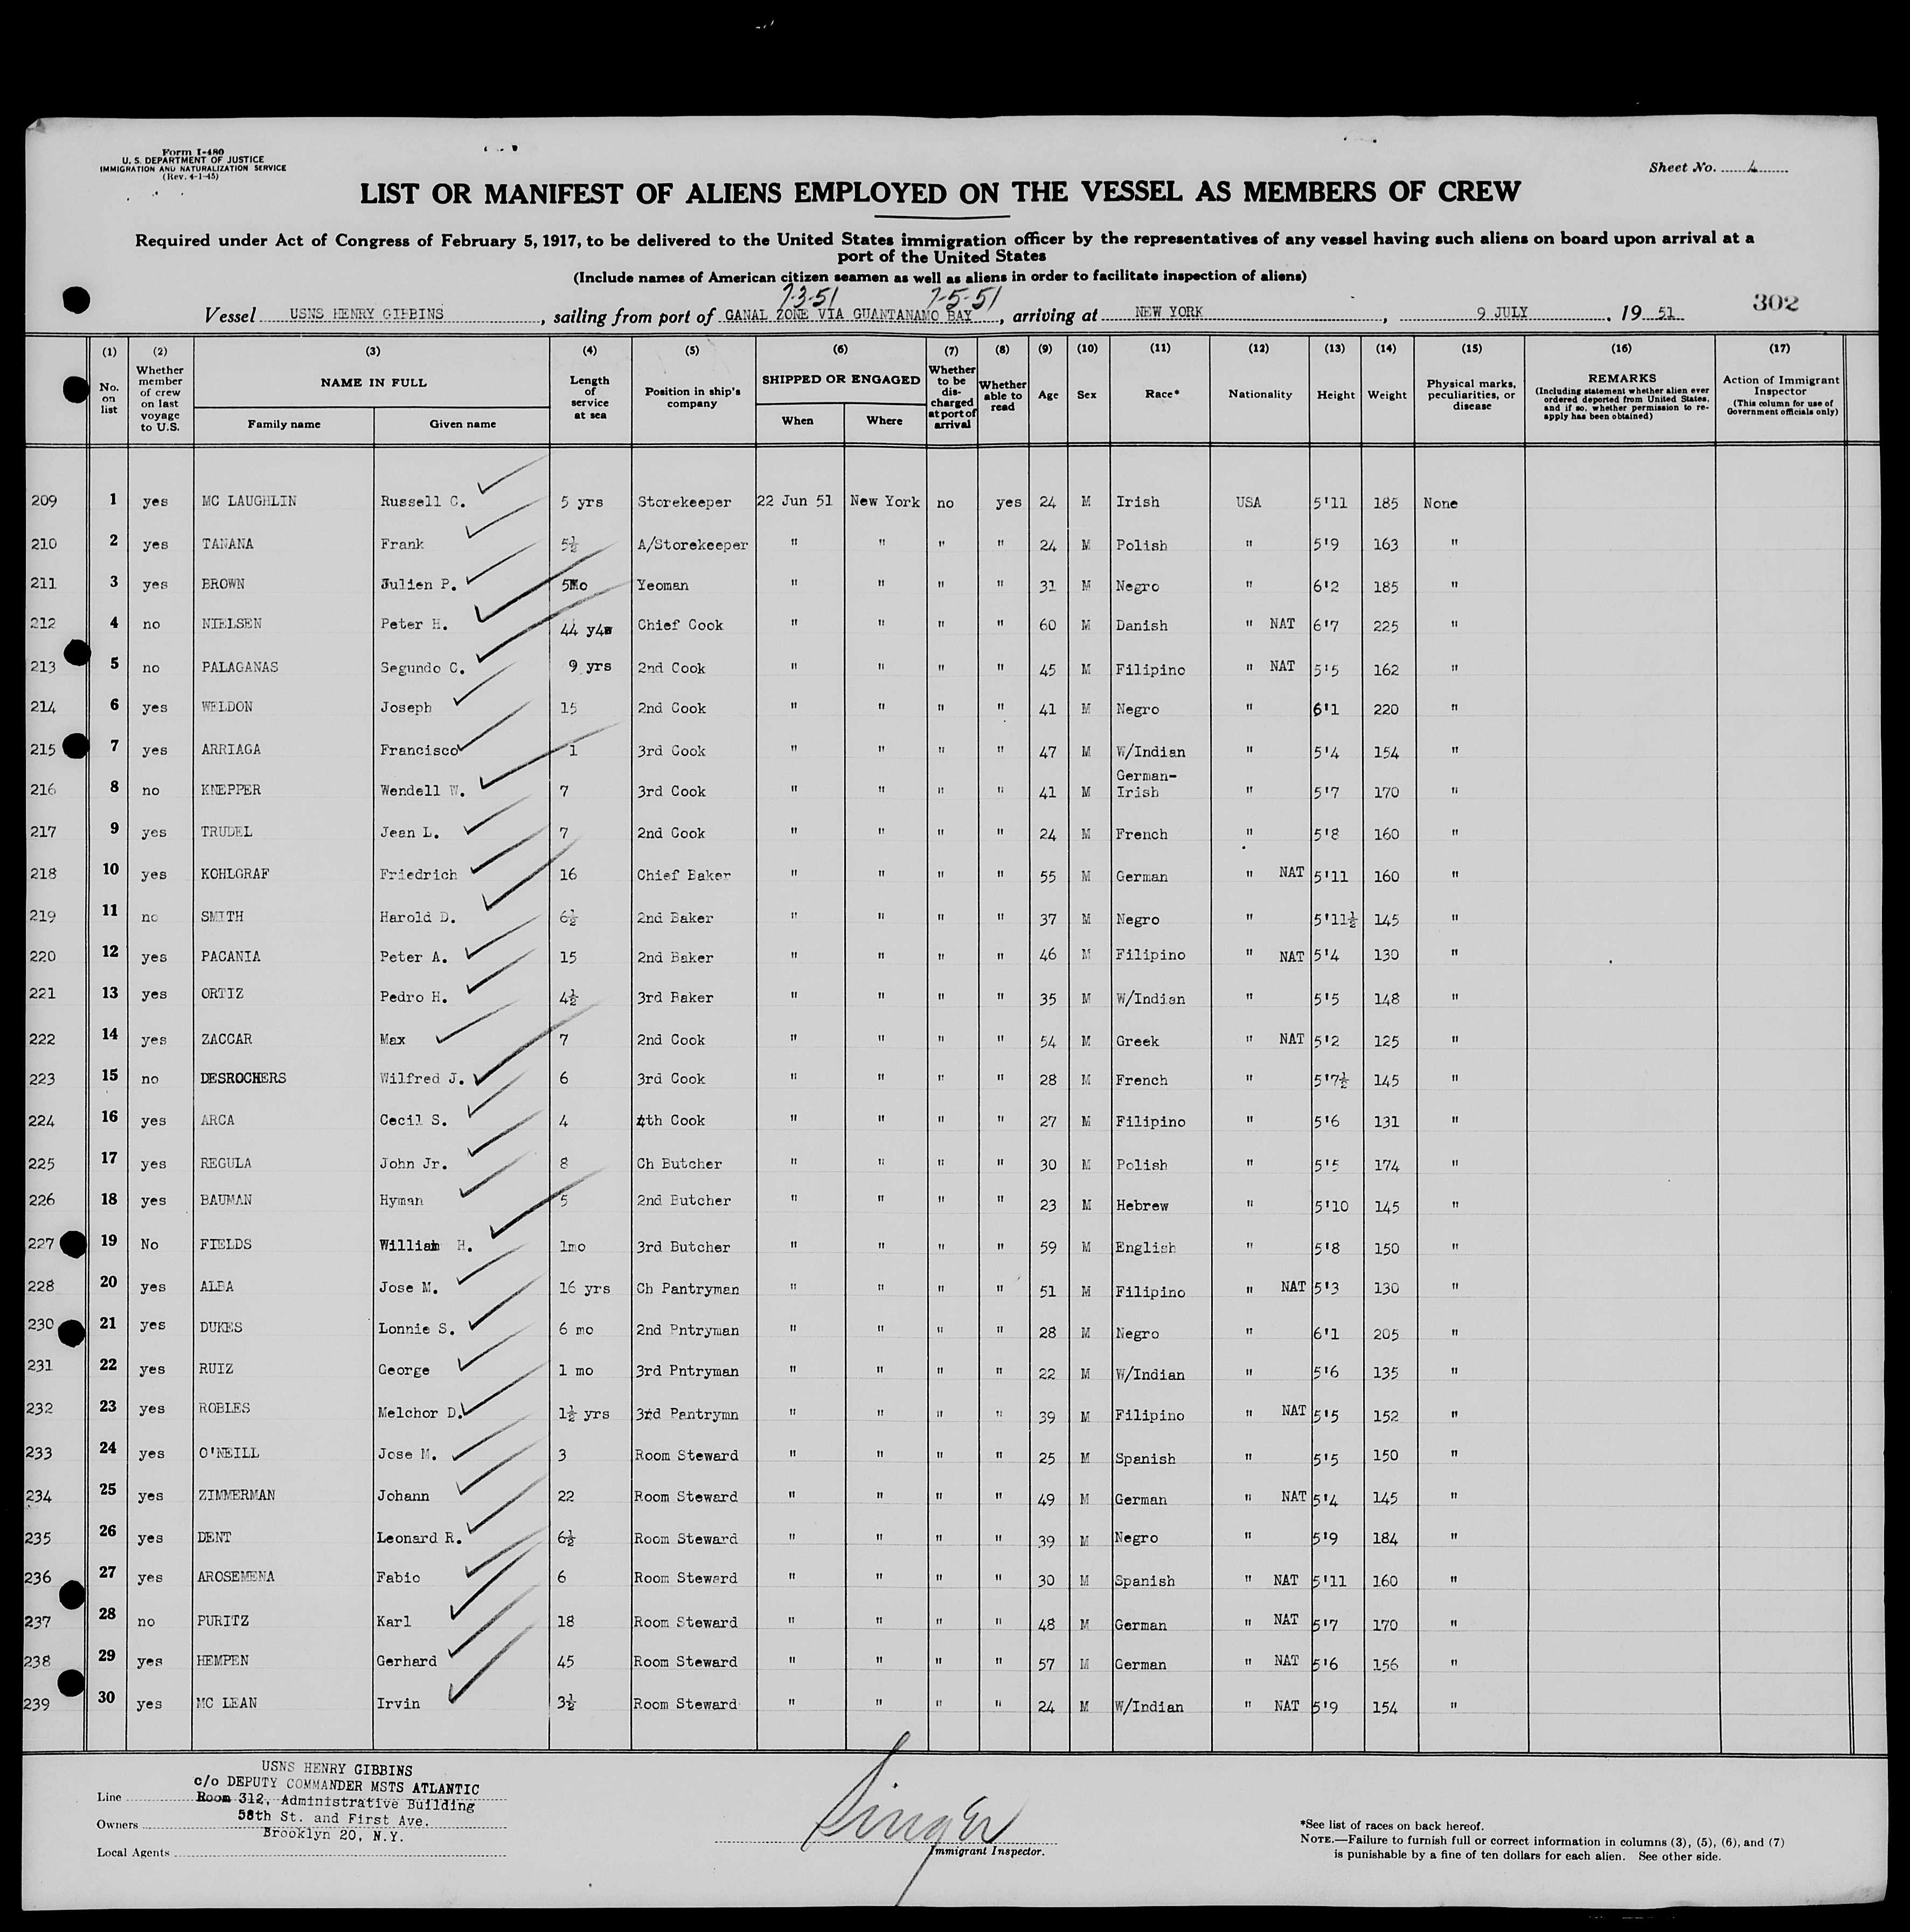 Form I-480
U. S. DEPARTMENT OF JUSTICE
IMMIGRATION AND NATURALIZATION SERVICE
(Rev. 4-1-45)
Sheet No. 4
LIST OR MANIFEST OF ALIENS EMPLOYED ON THE VESSEL AS MEMBERS OF CREW
Required under Act of Congress of February 5, 1917, to be delivered to the United States immigration officer by the representatives of any vessel having such aliens on board upon arrival at a
port of the United States
(Include names of American citizen seamen as well as aliens in order to facilitate inspection of aliens)
7-3-51 7-5-51
Vessel USNS HENRY GIBBINS, sailing from port of CANAL ZONE VIA GUANTANAMO BAY, arriving at NEW YORK, 9 JULY, 19 51
302
(1) No. on list
(2) Whether member of crew on last voyage to U.S.
(3) NAME IN FULL Family name Given name
(4) Length of service at sea
(5) Position in ship's company
(6) SHIPPED OR ENGAGED When Where
(7) Whether to be discharged at port of arrival
(8) Whether able to read
(9) Age
(10) Sex
(11) Race*
(12) Nationality
(13) Height
(14) Weight
(15) Physical marks, peculiarities, or disease
(16) REMARKS (Including statement whether alien ever ordered deported from United States, and if so, whether permission to reapply has been obtained)
(17) Action of Immigrant Inspector (This column for use of Government officials only)
209 1 yes MC LAUGHLIN Russell C. 5 yrs Storekeeper 22 Jun 51 New York no yes 24 M Irish USA 5'11 185 None
210 2 yes TANANA Frank 5½ A/Storekeeper " " " " 24 M Polish " 5'9 163 "
211 3 yes BROWN Julien P. 5Mo Yeoman " " " " 31 M Negro " 6'2 185 "
212 4 no NIELSEN Peter H. 44 y4m Chief Cook " " " " 60 M Danish " NAT 6'7 225 "
213 5 no PALAGANAS Segundo C. 9 yrs 2nd Cook " " " " 45 M Filipino " NAT 5'5 162 "
214 6 yes WELDON Joseph 15 2nd Cook " " " " 41 M Negro " 6'1 220 "
215 7 yes ARRIAGA Francisco 1 3rd Cook " " " " 47 M W/Indian " 5'4 154 "
216 8 no KNEPPER Wendell W. 7 3rd Cook " " " " 41 M German-Irish " 5'7 170 "
217 9 yes TRUDEL Jean L. 7 2nd Cook " " " " 24 M French " 5'8 160 "
218 10 yes KOHLGRAF Friedrich 16 Chief Baker " " " " 55 M German " NAT 5'11 160 "
219 11 no SMITH Harold D. 6½ 2nd Baker " " " " 37 M Negro " 5'11½ 145 "
220 12 yes PACANIA Peter A. 15 2nd Baker " " " " 46 M Filipino " NAT 5'4 130 "
221 13 yes ORTIZ Pedro H. 4½ 3rd Baker " " " " 35 M W/Indian " 5'5 148 "
222 14 yes ZACCAR Max 7 2nd Cook " " " " 54 M Greek " NAT 5'2 125 "
223 15 no DESROCHERS Wilfred J. 6 3rd Cook " " " " 28 M French " 5'7½ 145 "
224 16 yes ARCA Cecil S. 4 4th Cook " " " " 27 M Filipino " 5'6 131 "
225 17 yes REGULA John Jr. 8 Ch Butcher " " " " 30 M Polish " 5'5 174 "
226 18 yes BAUMAN Hyman 5 2nd Butcher " " " " 23 M Hebrew " 5'10 145 "
227 19 No FIELDS William H. 1mo 3rd Butcher " " " " 59 M English " 5'8 150 "
228 20 yes ALBA Jose M. 16 yrs Ch Pantryman " " " " 51 M Filipino " NAT 5'3 130 "
230 21 yes DUKES Lonnie S. 6 mo 2nd Pntryman " " " " 28 M Negro " 6'1 205 "
231 22 yes RUIZ George 1 mo 3rd Pntryman " " " " 22 M W/Indian " 5'6 135 "
232 23 yes ROBLES Melchor D. 1½ yrs 3rd Pantrymn " " " " 39 M Filipino " NAT 5'5 152 "
233 24 yes O'NEILL Jose M. 3 Room Steward " " " " 25 M Spanish " 5'5 150 "
234 25 yes ZIMMERMAN Johann 22 Room Steward " " " " 49 M German " NAT 5'4 145 "
235 26 yes DENT Leonard R. 6½ Room Steward " " " " 39 M Negro " 5'9 184 "
236 27 yes AROSEMENA Fabio 6 Room Steward " " " " 30 M Spanish " NAT 5'11 160 "
237 28 no PURITZ Karl 18 Room Steward " " " " 48 M German " NAT 5'7 170 "
238 29 yes HEMPEN Gerhard 45 Room Steward " " " " 57 M German " NAT 5'6 156 "
239 30 yes MC LEAN Irvin 3½ Room Steward " " " " 24 M W/Indian " NAT 5'9 154 "
USNS HENRY GIBBINS
c/o DEPUTY COMMANDER MSTS ATLANTIC
Line Room 312, Administrative Building
58th St. and First Ave.
Owners
Brooklyn 20, N.Y.
Local Agents
Singer
Immigrant Inspector.
*See list of races on back hereof.
NOTE.—Failure to furnish full or correct information in columns (3), (5), (6), and (7)
is punishable by a fine of ten dollars for each alien. See other side.